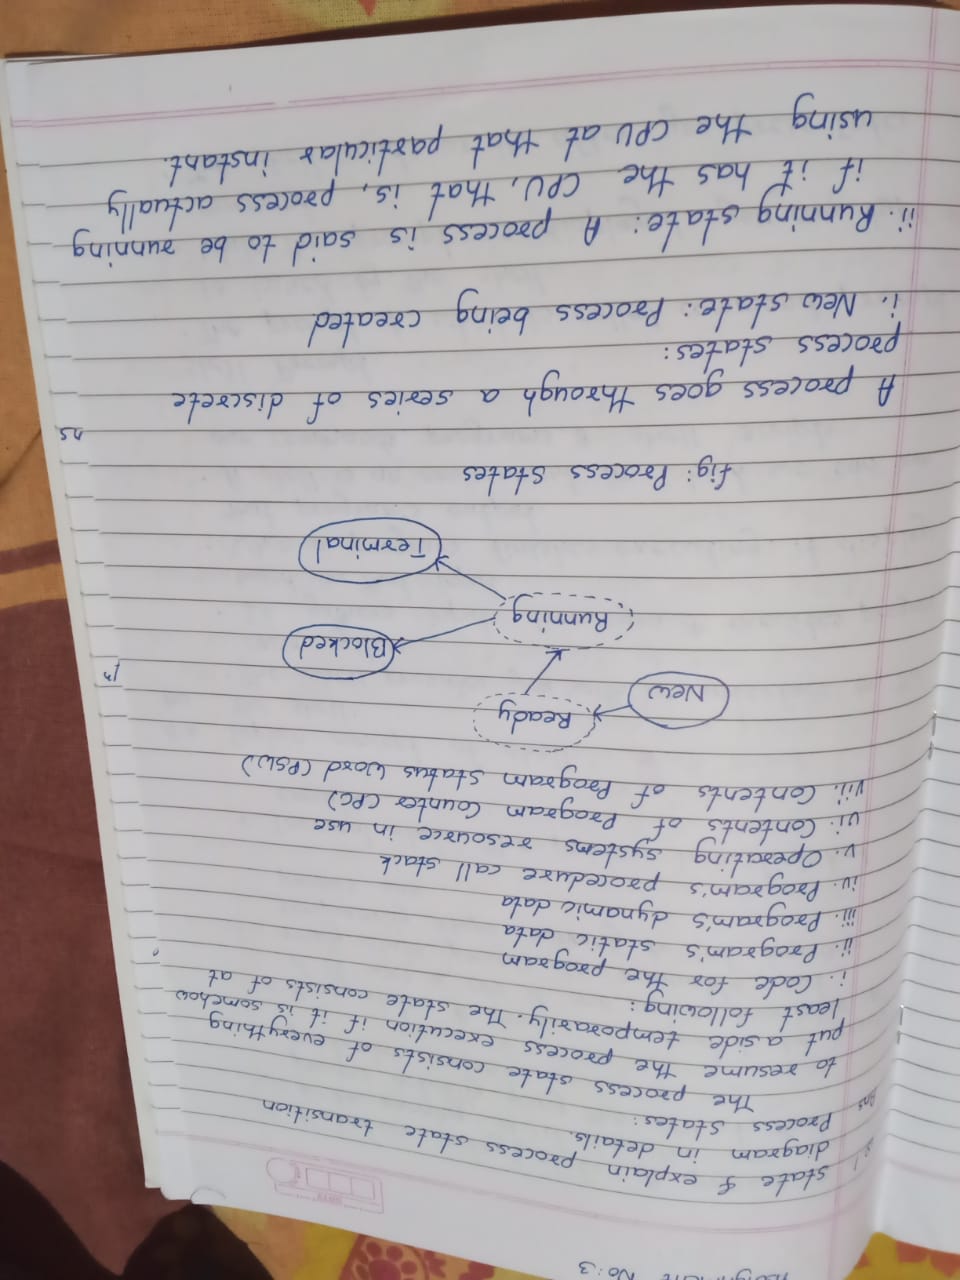 No: 3
State & explain process state transition
diagram in details.
Process states:
Ans The process state consists of everything
to resume the process execution if it is somehow
put aside temporarily. The state consists of at
least following:
i. Code for the program
ii. Program's static data
iii. Program's dynamic data
iv. Program's procedure call stack
v. Operating systems resource in use
vi. Contents of Program Counter (PC)
vii. Contents of Program Status Word (PSW)
New
Ready
Running
Blocked
Terminal
fig: Process states
A process goes through a series of discrete
process states:
i. New state: Process being created
ii. Running state: A process is said to be running
if it has the CPU, that is, process actually
using the CPU at that particular instant.